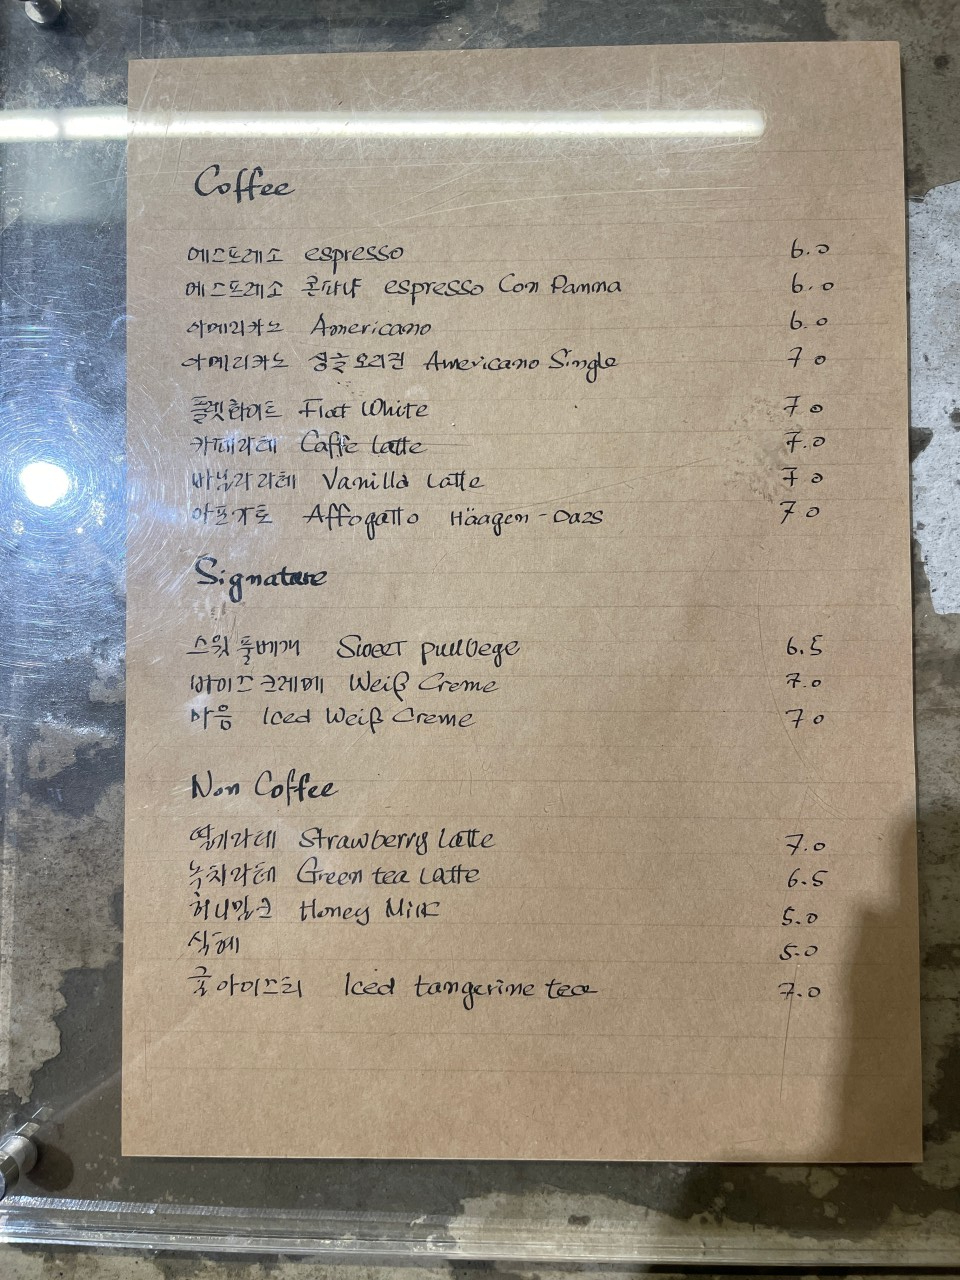 Coffee
에스프레소 espresso 6.0
에스프레소 콘파냐 espresso Con Panna 6.0
아메리카노 Americano 6.0
아메리카노 싱글오리진 Americano Single 7.0
플랫화이트 Flat White 7.0
카페라떼 Caffe Latte 7.0
바닐라라떼 Vanilla Latte 7.0
아포가토 Affogatto Häagen-Dazs 7.0
Signature
스윗풀베개 Sweet pullbege 6.5
바이스크레메 Weiß Creme 7.0
마음 Iced Weiß Creme 7.0
Non Coffee
딸기라떼 Strawberry Latte 7.0
녹차라떼 Green tea Latte 6.5
허니밀크 Honey Milk 5.0
식혜 5.0
귤아이스티 Iced tangerine tea 7.0